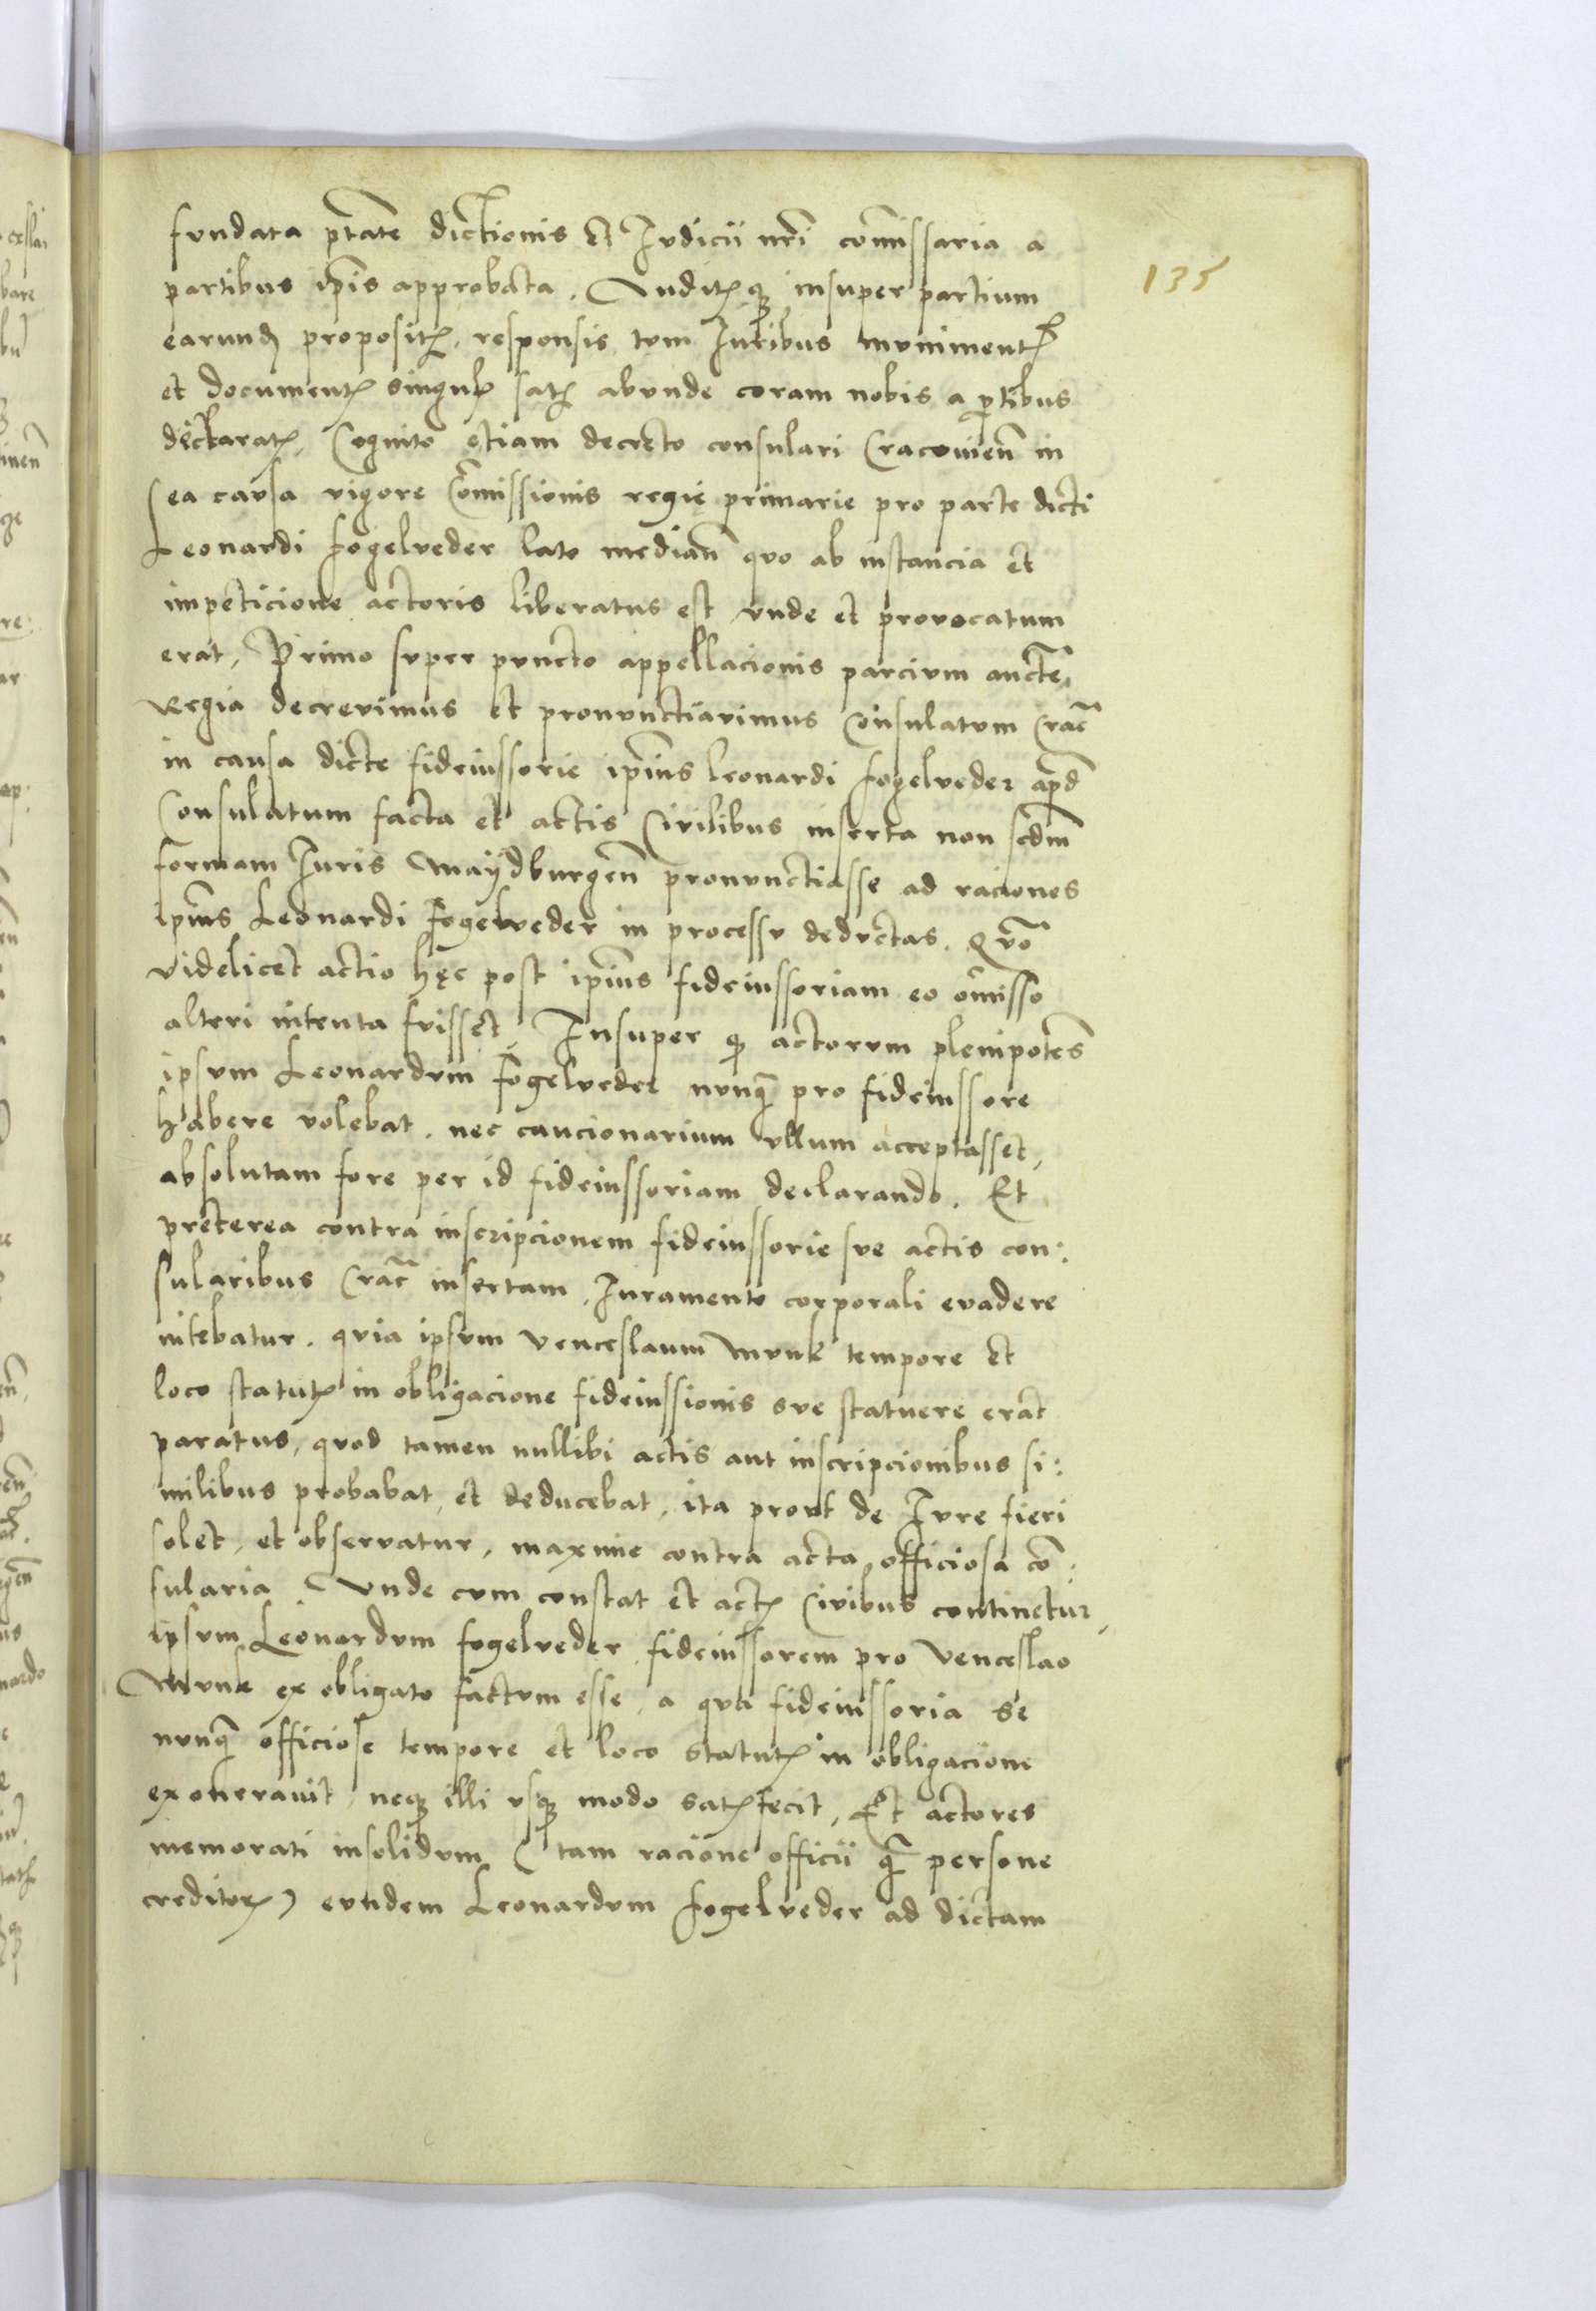 fundata ptāte dictionis et Iudicii nrī comissaria a
partibus ipīs approbata. Auditꝭ qꝫ insuper partium
earundꝫ propositꝭ, responsis tum Iuribus munimentꝭ
et documentꝭ singulꝭ satꝭ abunde coram nobis a ptibus
declaratꝭ, Cognito etiam decreto consulari Cracouienn̄ in
ea causa vigore comissionis regie primarie pro parte dicti
Leonardi Fogelueder lato mediañ quo ab instancia et
impeticione actoris liberatus est vnde et prouocatum
erat, Primo super puncto appellacionis parcium auctē
Regia decreuimus et pronunctiauimus Consulatum Crač
in causa dicte fideiussorie ipīus Leonardi Fogelueder apd̄
Consulatum facta et actis Ciuilibus inserta non scdm̄
formam Iuris Maÿdburgeñ pronunctiasse ad raciones
ipīus Leonardi Fogelueder in processu deductas. Quō
videlicet actio hęc post ipīus fideiussoriam eo omisso
alteri intenta fuisset, Insuper qꝫ actorum plenipotēs
ipsum Leonardum Fogelueder nunqꝫ pro fideiussore
habere volebat. nec caucionarium vllum acceptasset,
absolutam fore per id fideiussoriam declarando. Et
preterea contra inscripcionem fideiussorie sue actis con:
sularibus Crač insertam, Iuramento corporali euadere
nitebatur. quia ipsum Venceslaum Munk tempore et
loco statutꝭ in obligacione fideiussionis sue statuere erat
paratus, quod tamen nullibi actis aut inscripcionibus si:
milibus probabat et deducebat, ita prout de Iure fieri
solet, et obseruatur, maxime contra acta officiosa cō:
sularia. Vnde cum constat et actꝭ Ciuibus continetur,
ipsum Leonardum Fogelueder fideiussorem pro Venceslao
Munk ex obligato factum esse, a qua fideiussoria se
nunqꝫ officiose tempore et loco statutꝭ in obligacione
exonerauit, neqꝫ illi vsqꝫ modo satꝭfecit, Et actores
memorati insolidum (tam racione officii qꝫ persone
creditorꝭ) eundem Leonardum Fogelueder ad dictam
135